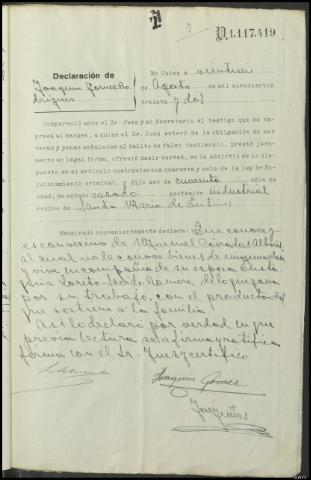 7
D.1.117.419
Declaración de
Joaquin Gomes Ro
driguez
En Cuica a veintiseis
de Agosto de mil novecientos
treinta y dos
Compareció ante el Sr. Juez y mi Secretario el testigo que se ex
presa al margen, a quien el Sr. Juez enteró de la obligación de ser
veraz y penas señaladas al delito de falso testimonio, prestó jura
mento en legal forma, ofreció decir verdad, se la advirtió de lo dis
puesto en el artículo cuatrocientos cuarenta y seis de la ley de En-
juiciamiento criminal, y dijo ser de cuarenta años de
edad, de estado casado profesión industrial
vecino de Santa Maria de
Examinado convenientemente declara: Que conoce y
es convecino de Manuel
al cual no le conoce bienes de ninguna clase
y vive en compañia de su esposa
Loreto Romero, de lo que gana
por su trabajo, con el producto del
que sostiene a la familia
Asi lo declaró por verdad en que
previa lectura, se afirma y ratifica
forma con el Sr. Juez y certifico
Joaquin Gomes
José